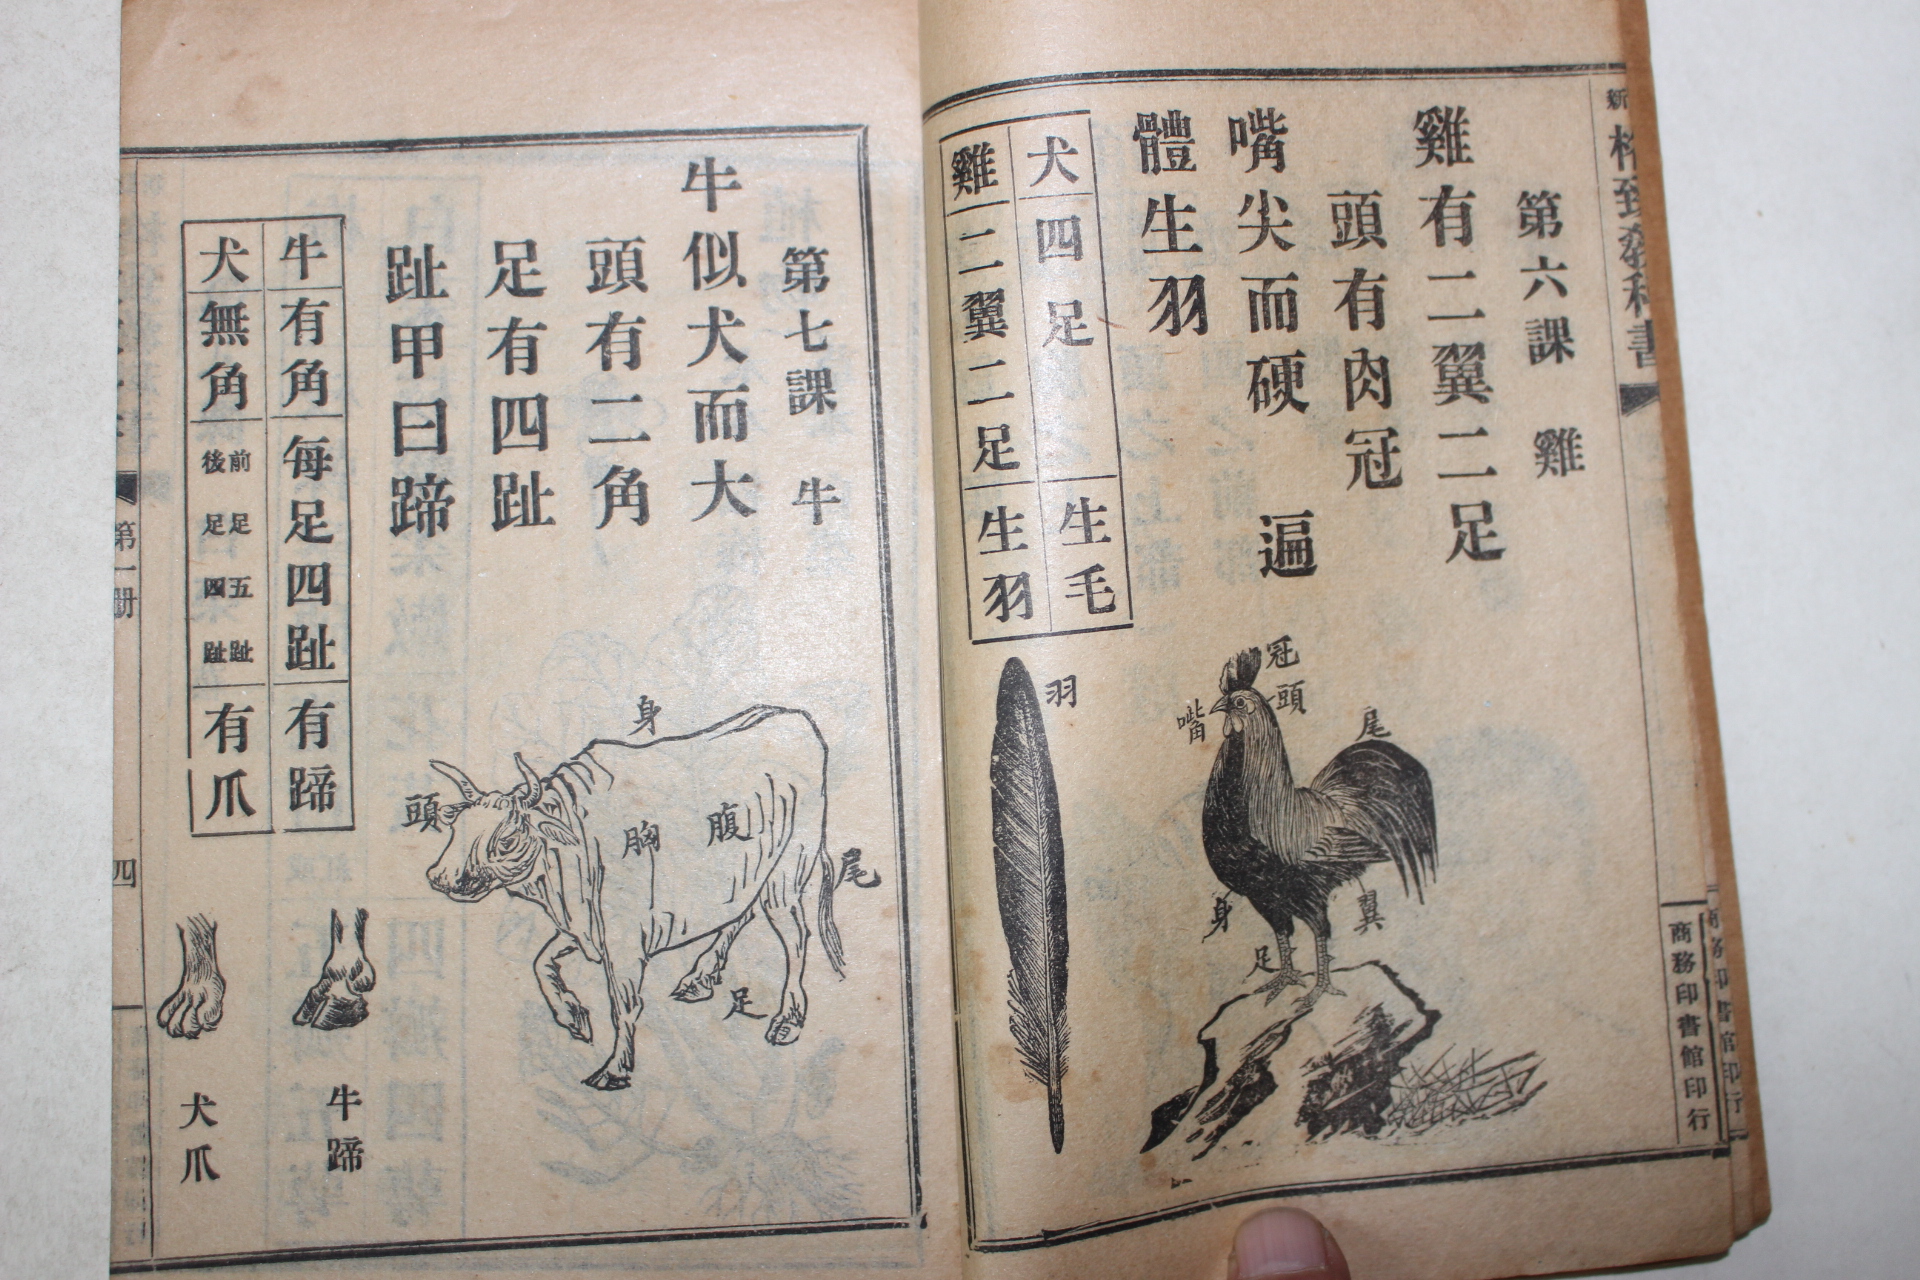 格致敎科書
商務印書館印行
第六課 雞
雞有二翼二足
頭有肉冠
嘴尖而硬 遍
體生羽
犬 四足 生毛
雞 二翼二足 生羽
冠
頭
嘴
尾
身
翼
足
羽
第七課 牛
牛似犬而大
頭有二角
足有四趾
趾甲曰蹄
牛 有角 每足四趾 有蹄
犬 無角 前足五趾 後足四趾 有爪
身
頭
胸
腹
尾
足
牛蹄
犬爪
第一册
四